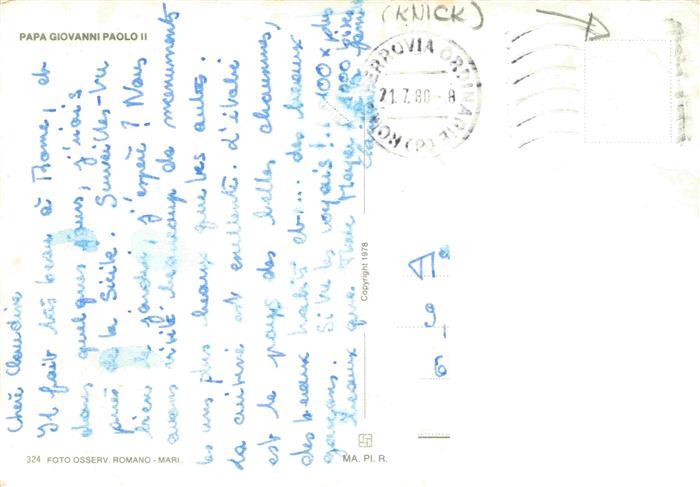 (KNICK)
PAPA GIOVANNI PAOLO II
FERROVIA ORDINARIE
21.7.80 - 8
ROMA
Chère Claudine
Il fait très beau à Rome, et
dans quelques jours, j'irais
la Sicile. Surveilles-tu
bien le jardin, j'espère? Nous
avons visité beaucoup de monuments
les uns plus beaux que les autres.
La cuisine est excellente. L'Italie
est le pays des belles chaussures,
des beaux habits et... des beaux
garçons. Si tu les voyais!.. 100x plus
beaux que 1000 fois
Copyright 1978
324 FOTO OSSERV. ROMANO - MARI
MA. PI. R.